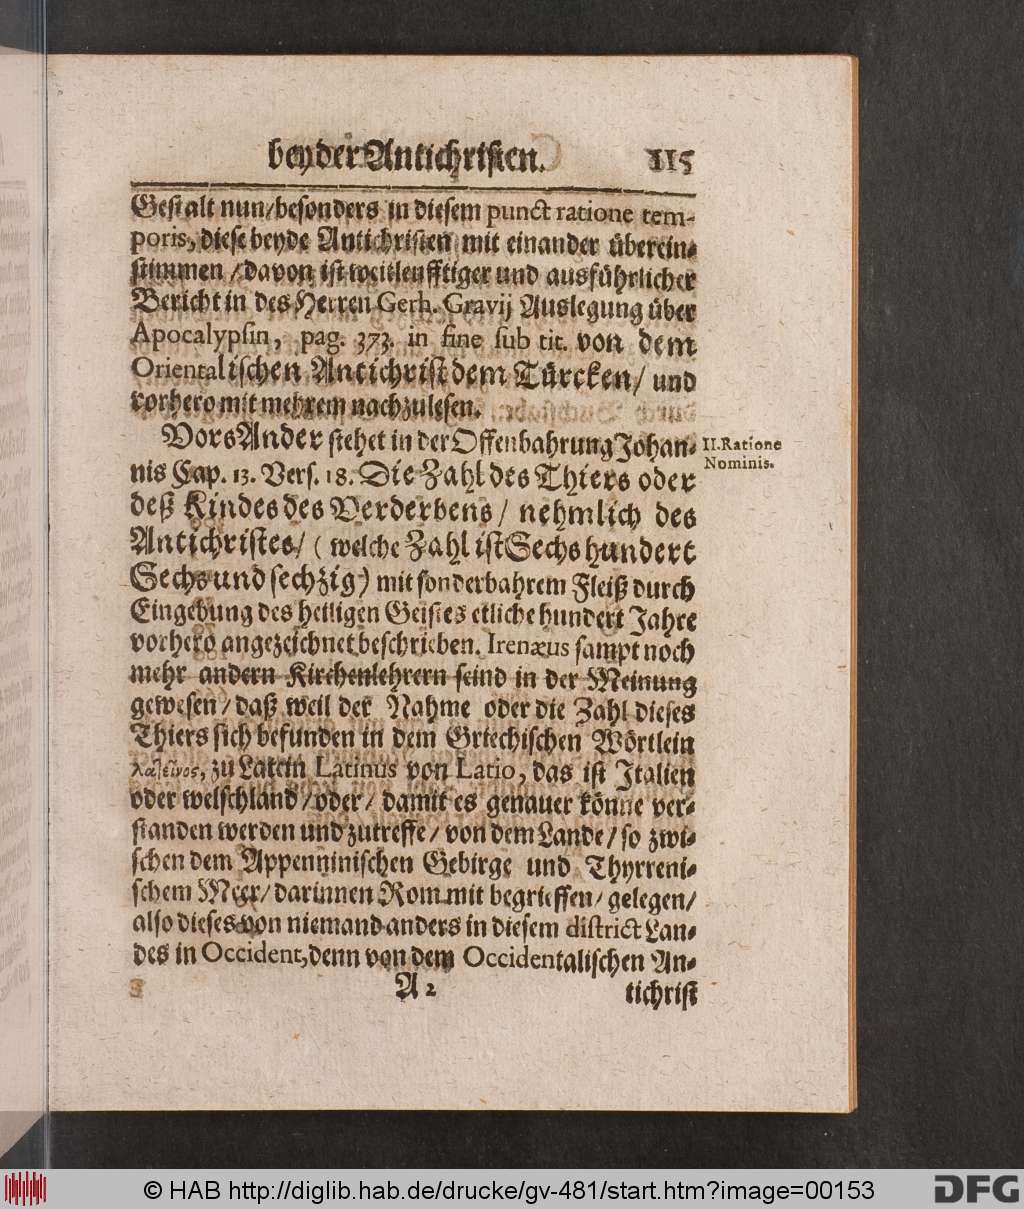 beyder Antichristen. 115
Gestalt nun/besonders in diesem punct ratione tem-
poris, diese beyde Antichristen mit einander überein-
stimmen /davon ist weitleufftiger und ausführlicher
Bericht in des Herren Gerh. Gravij Auslegung über
Apocalypsin, pag. 373. in fine sub tit. von dem
Orientalischen Antichrist dem Türcken/ und
vorhero mit mehrem nachzulesen.
Vors Ander stehet in der Offenbahrung Johan-
II. Ratione
Nominis.
nis Cap. 13. Vers. 18. Die Zahl des Thiers oder
deß Kindes des Verderbens/ nehmlich des
Antichristes/ ( welche Zahl ist Sechs hundert
Sechs und sechzig) mit sonderbahrem Fleiß durch
Eingebung des heiligen Geistes etliche hundert Jahre
vorhero angezeichnet beschrieben. Irenæus sampt noch
mehr andern Kirchenlehrern seind in der Meinung
gewesen/ daß weil der Nahme oder die Zahl dieses
Thiers sich befunden in dem Griechischen Wörtlein
λατεῖνος, zu Latein Latinus von Latio, das ist Italien
oder welschland/oder/ damit es genauer könne ver-
standen werden und zutreffe/ von dem Lande/ so zwi-
schen dem Appenninischen Gebirge und Thyrreni-
schem Meer/ darinnen Rom mit begrieffen/ gelegen/
also dieses von niemand anders in diesem district Lan-
des in Occident, denn von dem Occidentalischen An-
A 2 tichrist
© HAB http://diglib.hab.de/drucke/gv-481/start.htm?image=00153
DFG